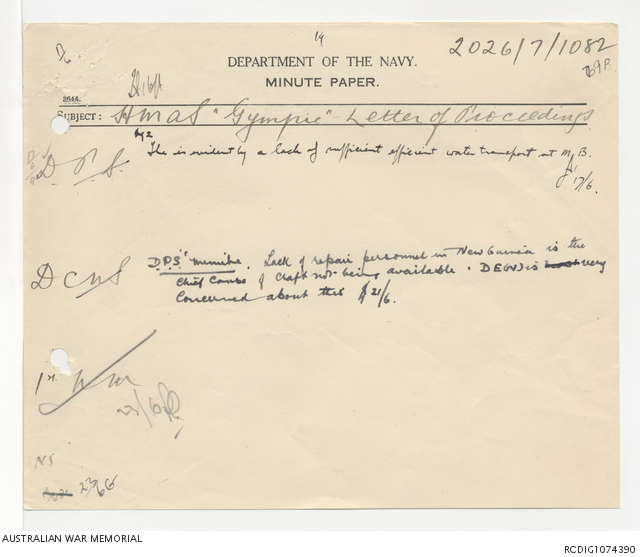 19
2026/7/1082
DEPARTMENT OF THE NAVY.
MINUTE PAPER.
2644.
SUBJECT: HMAS "Gympie" - Letter of Proceedings
D.P.S.
is evident by a lack of sufficient efficient water transport at M.B.
17/6.
DCNS
D.P.S' Minute. Lack of repair personnel in New Guinea is the
Chief Cause of craft not being available. DE(N) is very
Concerned about this 21/6.
1st
NS
23/6
AUSTRALIAN WAR MEMORIAL
RCDIG1074390